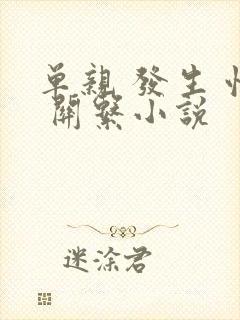 單親 發生 性
關繫小說
迷涂君